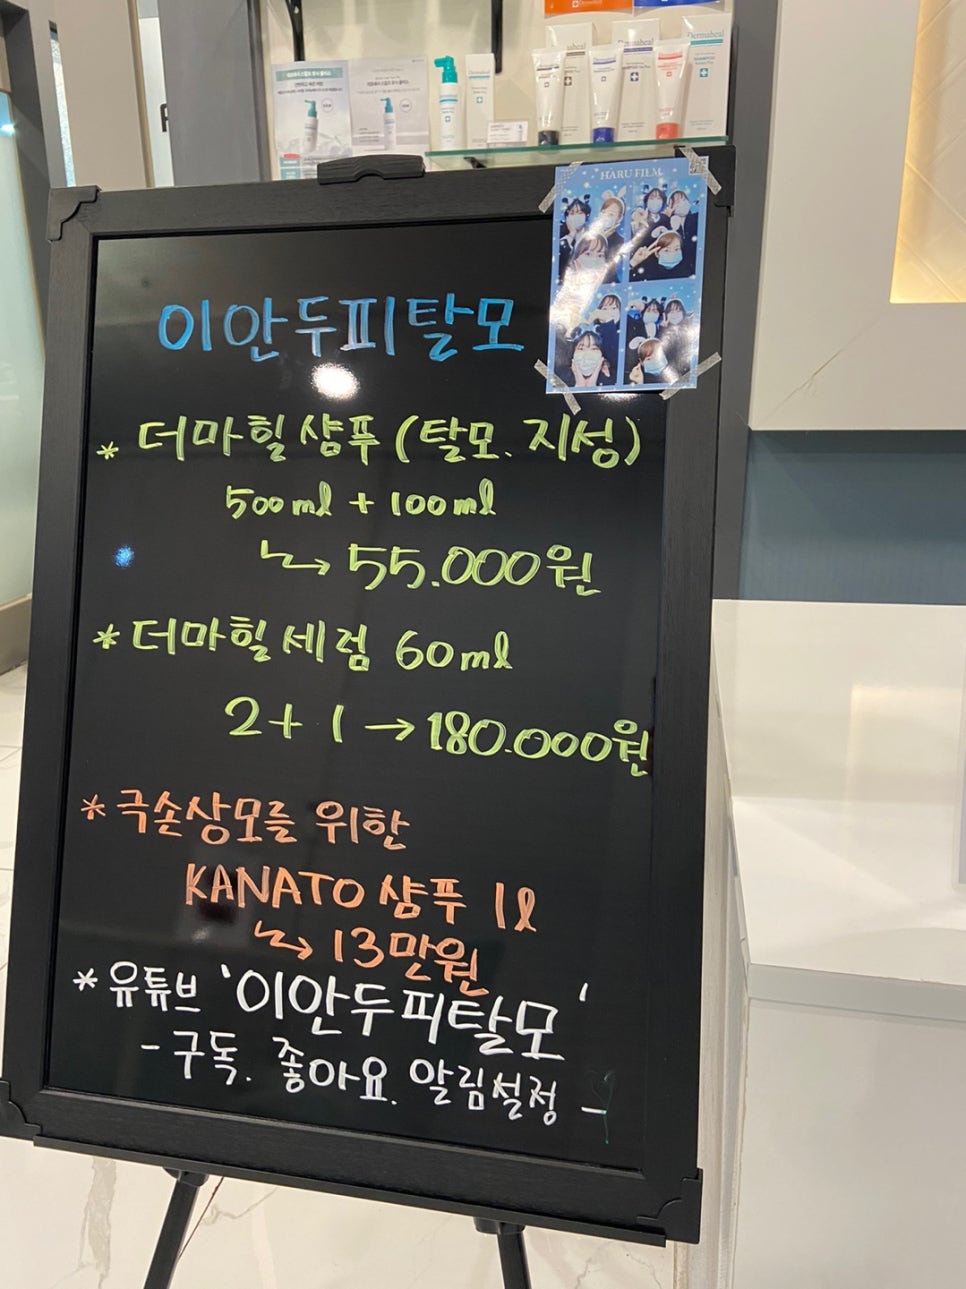 Dermaheal
Dermaheal
Dermaheal
Dermaheal
SHAMPOO
HARU FILM
이안두피탈모
* 더마힐 샴푸 (탈모. 지성)
500ml + 100ml
↳ 55.000원
* 더마힐 세럼 60ml
2 + 1 → 180.000원
* 극손상모를 위한
KANATO 샴푸 1l
↳ 13만원
* 유튜브 '이안두피탈모'
- 구독. 좋아요. 알림설정 -